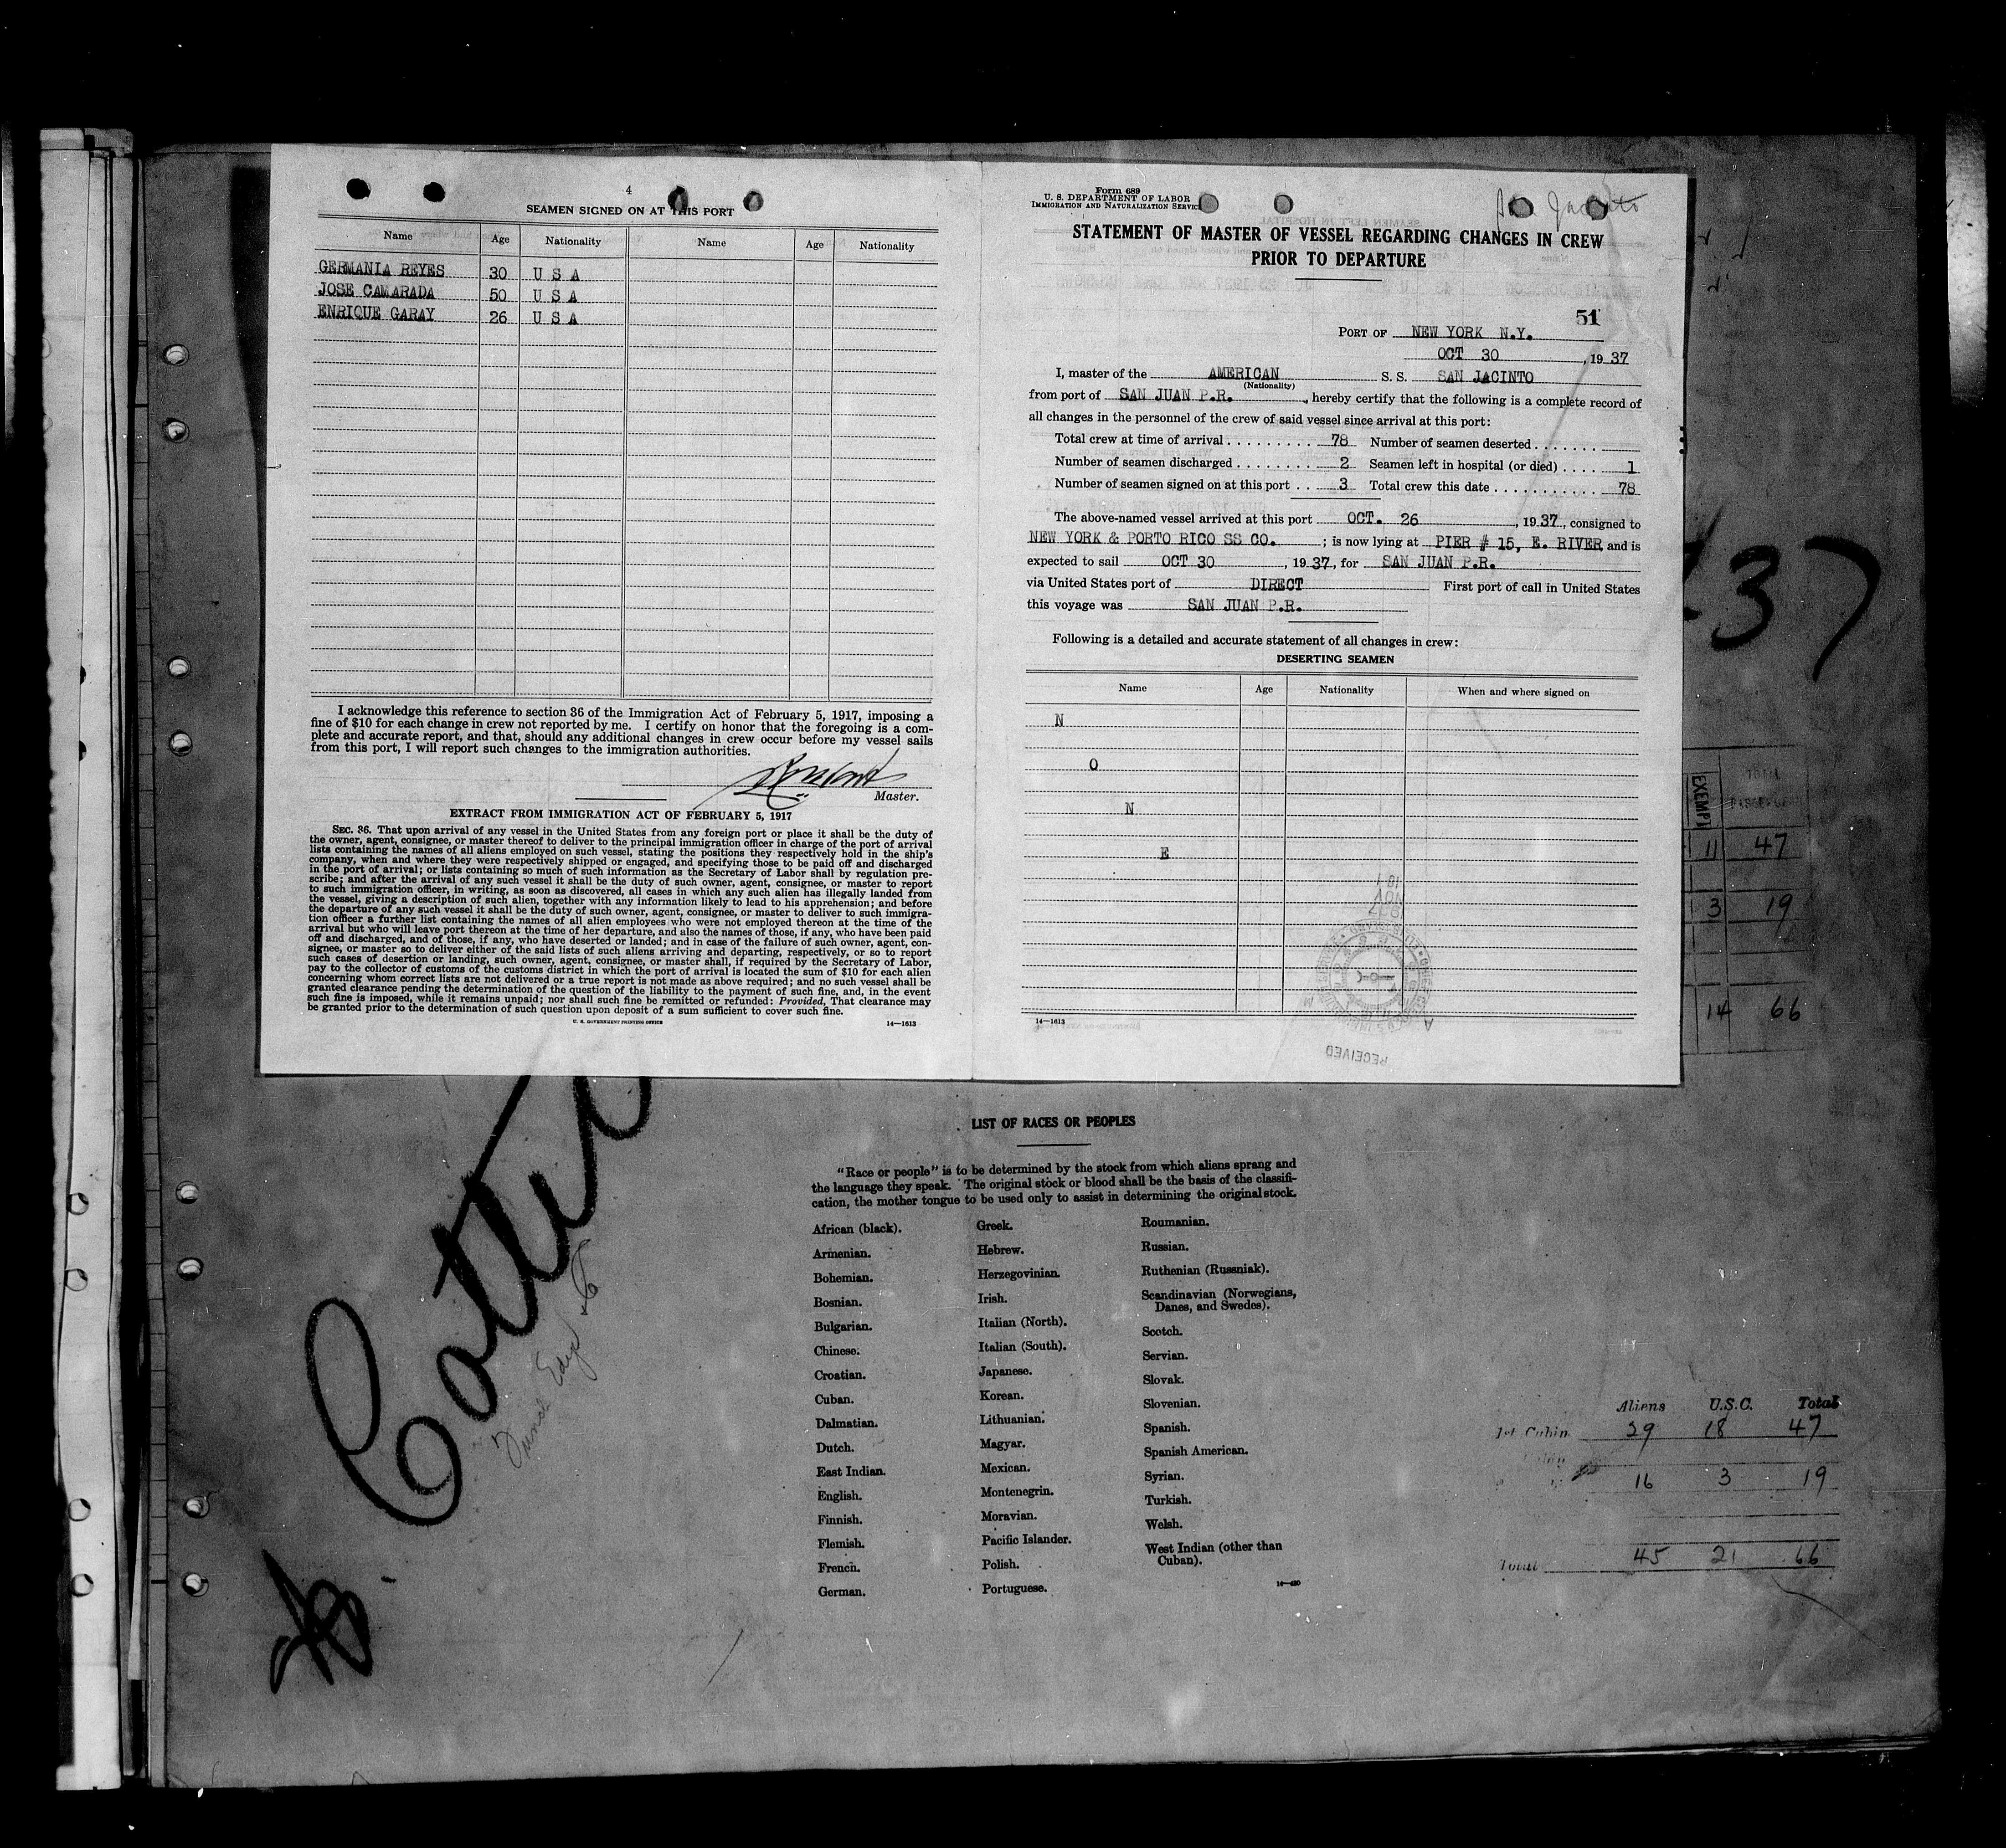 4
SEAMEN SIGNED ON AT THIS PORT
Name Age Nationality Name Age Nationality
GERMANIA REYES 30 U S A
JOSE CAMARADA 50 U S A
ENRIQUE GARAY 26 U S A
I acknowledge this reference to section 36 of the Immigration Act of February 5, 1917, imposing a
fine of $10 for each change in crew not reported by me. I certify on honor that the foregoing is a com-
plete and accurate report, and that, should any additional changes in crew occur before my vessel sails
from this port, I will report such changes to the immigration authorities.
Master.
EXTRACT FROM IMMIGRATION ACT OF FEBRUARY 5, 1917
SEC. 36. That upon arrival of any vessel in the United States from any foreign port or place it shall be the duty of
the owner, agent, consignee, or master thereof to deliver to the principal immigration officer in charge of the port of arrival
lists containing the names of all aliens employed on such vessel, stating the positions they respectively hold in the ship's
company, when and where they were respectively shipped or engaged, and specifying those to be paid off and discharged
in the port of arrival; or lists containing so much of such information as the Secretary of Labor shall by regulation pre-
scribe; and after the arrival of any such vessel it shall be the duty of such owner, agent, consignee, or master to report
to such immigration officer, in writing, as soon as discovered, all cases in which any such alien has illegally landed from
the vessel, giving a description of such alien, together with any information likely to lead to his apprehension; and before
the departure of any such vessel it shall be the duty of such owner, agent, consignee, or master to deliver to such immigra-
tion officer a further list containing the names of all alien employees who were not employed thereon at the time of the
arrival but who will leave port thereon at the time of her departure, and also the names of those, if any, who have been paid
off and discharged, and of those, if any, who have deserted or landed; and in case of the failure of such owner, agent, con-
signee, or master so to deliver either of the said lists of such aliens arriving and departing, respectively, or so to report
such cases of desertion or landing, such owner, agent, consignee, or master shall, if required by the Secretary of Labor,
pay to the collector of customs of the customs district in which the port of arrival is located the sum of $10 for each alien
concerning whom correct lists are not delivered or a true report is not made as above required; and no such vessel shall be
granted clearance pending the determination of the question of the liability to the payment of such fine, and, in the event
such fine is imposed, while it remains unpaid; nor shall such fine be remitted or refunded: Provided, That clearance may
be granted prior to the determination of such question upon deposit of a sum sufficient to cover such fine.
U. S. GOVERNMENT PRINTING OFFICE 14—1613
Form 689
U. S. DEPARTMENT OF LABOR
IMMIGRATION AND NATURALIZATION SERVICE
San Jacinto
STATEMENT OF MASTER OF VESSEL REGARDING CHANGES IN CREW
PRIOR TO DEPARTURE
51
PORT OF NEW YORK N.Y.
OCT 30, 1937
I, master of the AMERICAN S. S. SAN JACINTO
(Nationality)
from port of SAN JUAN P.R., hereby certify that the following is a complete record of
all changes in the personnel of the crew of said vessel since arrival at this port:
Total crew at time of arrival . . . . . . . . . 78 Number of seamen deserted . . . . . . .
Number of seamen discharged . . . . . . . . 2 Seamen left in hospital (or died) . . . . 1
Number of seamen signed on at this port . . 3 Total crew this date . . . . . . . . . . . 78
The above-named vessel arrived at this port OCT. 26, 1937, consigned to
NEW YORK & PORTO RICO SS CO. ; is now lying at PIER # 15, E. RIVER and is
expected to sail OCT 30, 1937, for SAN JUAN P.R.
via United States port of DIRECT First port of call in United States
this voyage was SAN JUAN P.R.
Following is a detailed and accurate statement of all changes in crew:
DESERTING SEAMEN
Name Age Nationality When and where signed on
N
O
N
E
14—1613
RECEIVED
37
EXEMPT TOTAL
11 47
3 19
14 66
LIST OF RACES OR PEOPLES
"Race or people" is to be determined by the stock from which aliens sprang and
the language they speak. The original stock or blood shall be the basis of the classifi-
cation, the mother tongue to be used only to assist in determining the original stock.
African (black).
Armenian.
Bohemian.
Bosnian.
Bulgarian.
Chinese.
Croatian.
Cuban.
Dalmatian.
Dutch.
East Indian.
English.
Finnish.
Flemish.
French.
German.
Greek.
Hebrew.
Herzegovinian.
Irish.
Italian (North).
Italian (South).
Japanese.
Korean.
Lithuanian.
Magyar.
Mexican.
Montenegrin.
Moravian.
Pacific Islander.
Polish.
Portuguese.
Roumanian.
Russian.
Ruthenian (Russniak).
Scandinavian (Norwegians,
Danes, and Swedes).
Scotch.
Servian.
Slovak.
Slovenian.
Spanish.
Spanish American.
Syrian.
Turkish.
Welsh.
West Indian (other than
Cuban).
Aliens U.S.C. Total
1st Cabin 29 18 47
16 3 19
Total 45 21 66